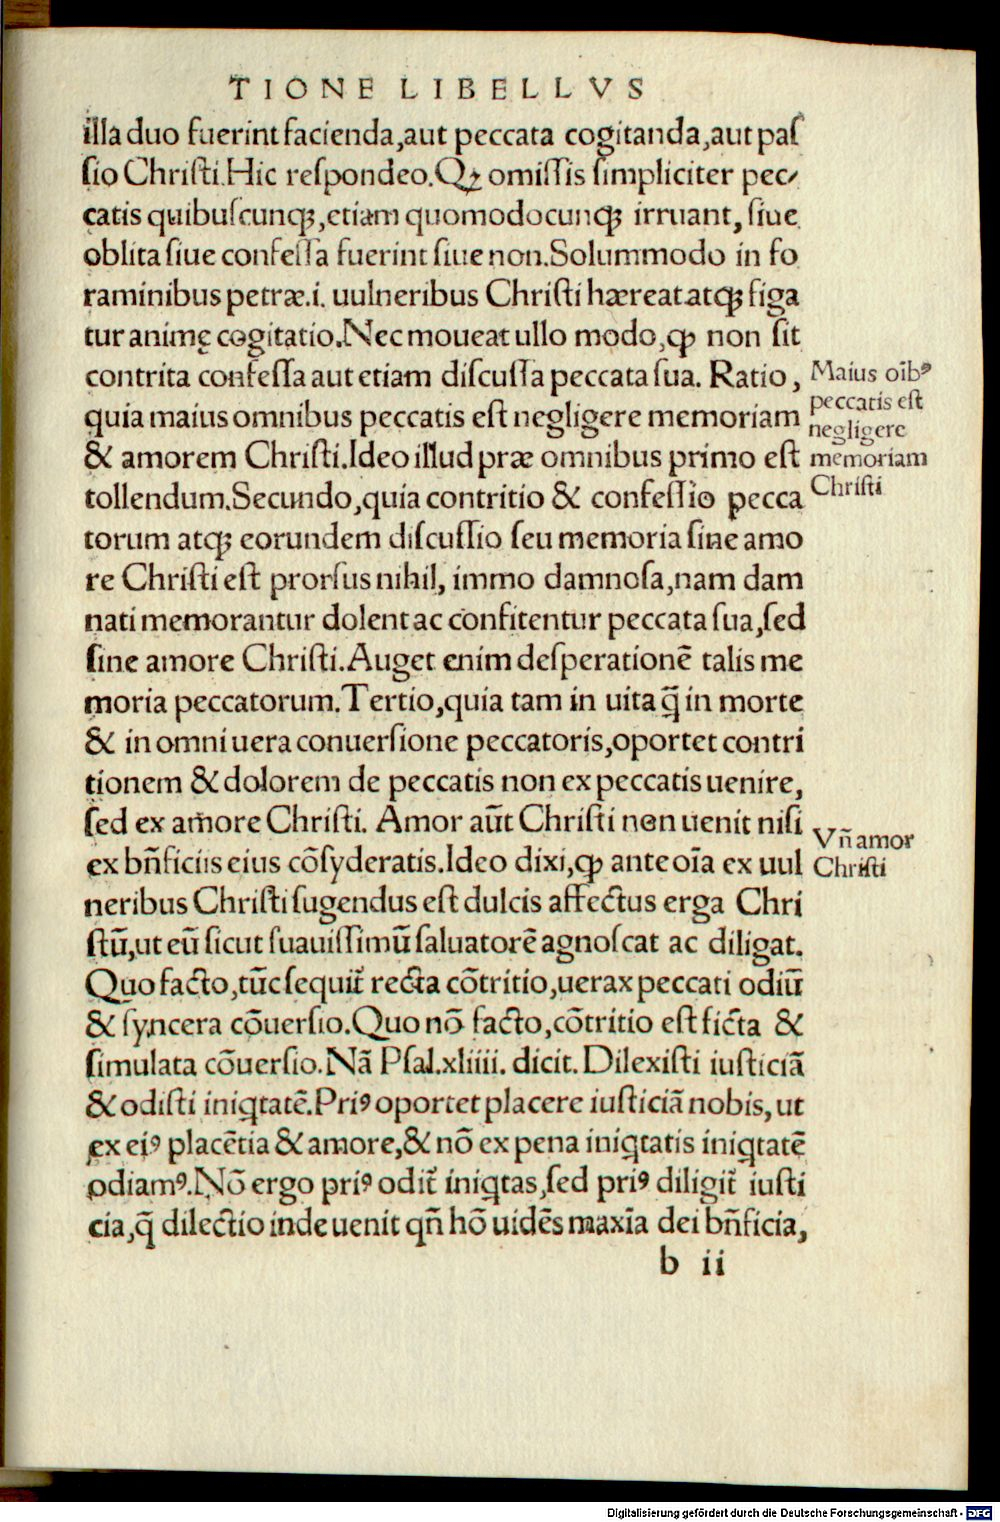 TIONE LIBELLVS
illa duo fuerint facienda,aut peccata cogitanda,aut paſ
ſio Chriſti.Hic reſpondeo.Qꝫ omiſſis ſimpliciter pec⸗
catis quibuſcunqꝫ,etiam quomodocunqꝫ irruant, ſiue
oblita ſiue confeſſa fuerint ſiue non.Solummodo in fo
raminibus petræ.i. uulneribus Chriſti hæreat atqꝫ figa
tur animę cogitatio.Nec moueat ullo modo,ꝙ non ſit
contrita confeſſa aut etiam diſcuſſa peccata ſua. Ratio,
quia maius omnibus peccatis eſt negligere memoriam
& amorem Chriſti.Ideo illud præ omnibus primo eſt
tollendum.Secundo,quia contritio & confeſſio pecca
torum atqꝫ eorundem diſcuſſio ſeu memoria ſine amo
re Chriſti eſt prorſus nihil, immo damnoſa,nam dam
nati memorantur dolent ac confitentur peccata ſua,ſed
ſine amore Chriſti.Auget enim deſperationē talis me
moria peccatorum.Tertio,quia tam in uita q̃ in morte
& in omni uera conuerſione peccatoris,oportet contri
tionem & dolorem de peccatis non ex peccatis uenire,
ſed ex amore Chriſti. Amor aũt Chriſti non uenit niſi
ex bñficiis eius cōſyderatis.Ideo dixi,ꝙ ante oīa ex uul
neribus Chriſti ſugendus eſt dulcis affectus erga Chri
ſtū,ut eū ſicut ſuauiſſimū ſaluatorē agnoſcat ac diligat.
Quo facto,tūc ſequit̃ recta cōtritio,uerax peccati odiū
& ſyncera cōuerſio.Quo nō facto,cōtritio eſt ficta &
ſimulata cōuerſio.Nā Pſal.xliiii. dicit. Dilexiſti iuſticiā
& odiſti iniqtatē.Priꝰ oportet placere iuſticiā nobis, ut
ex eiꝰ placētia & amore,& nō ex pena iniqtatis iniqtatē
odiamꝰ.Nō ergo priꝰ odit̃ iniqtas,ſed priꝰ diligit̃ iuſti
cia,q̃ dilectio inde uenit qñ hō uidēs maxīa dei bñficia,
b ii
Maius oībꝰ
peccatis eſt
negligere
memoriam
Chriſti
Vñ amor
Chriſti
Digitalisierung gefördert durch die Deutsche Forschungsgemeinschaft - DFG